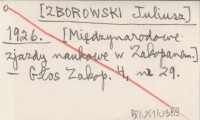 [ZBOROWSKI Juliusz]
1926. [Międzynarodowe
zjazdy naukowe w Zakopanem.]
— Głos Zakop. 4, nr 29.